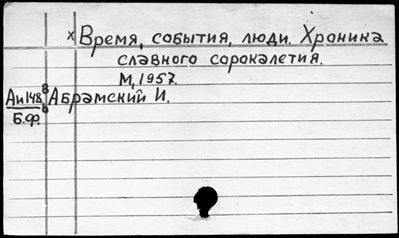 x Время, события, люди. Хроника
славного сорокалетия.
М, 1957.
Аи148 Абрамский И.
Б.ф.